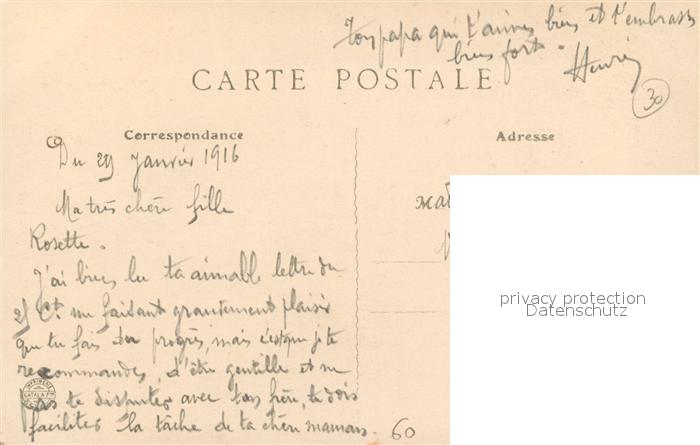 Ton papa qui t'aimes bien et t'embrass
bien fort. Henri
30
CARTE POSTALE
Correspondance
Adresse
Du 29 Janvier 1916
Ma très chère fille
Rosette.
J'ai bien lu ta aimable lettre du
25 Ct. me faisant grandement plaisir
que tu fais des progrès, mais c'est que je te
recommandes, d'être gentille et ne
pas te disputer avec ton frère, tu dois
faciliter la tâche de ta chère maman.
60
privacy protection
Datenschutz